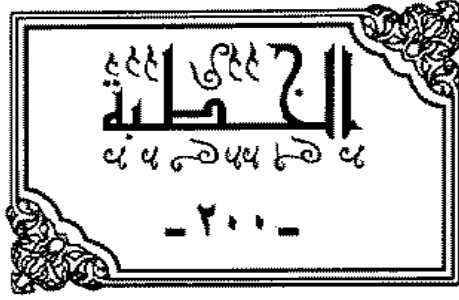 الخطبة
- ٢٠٠ -